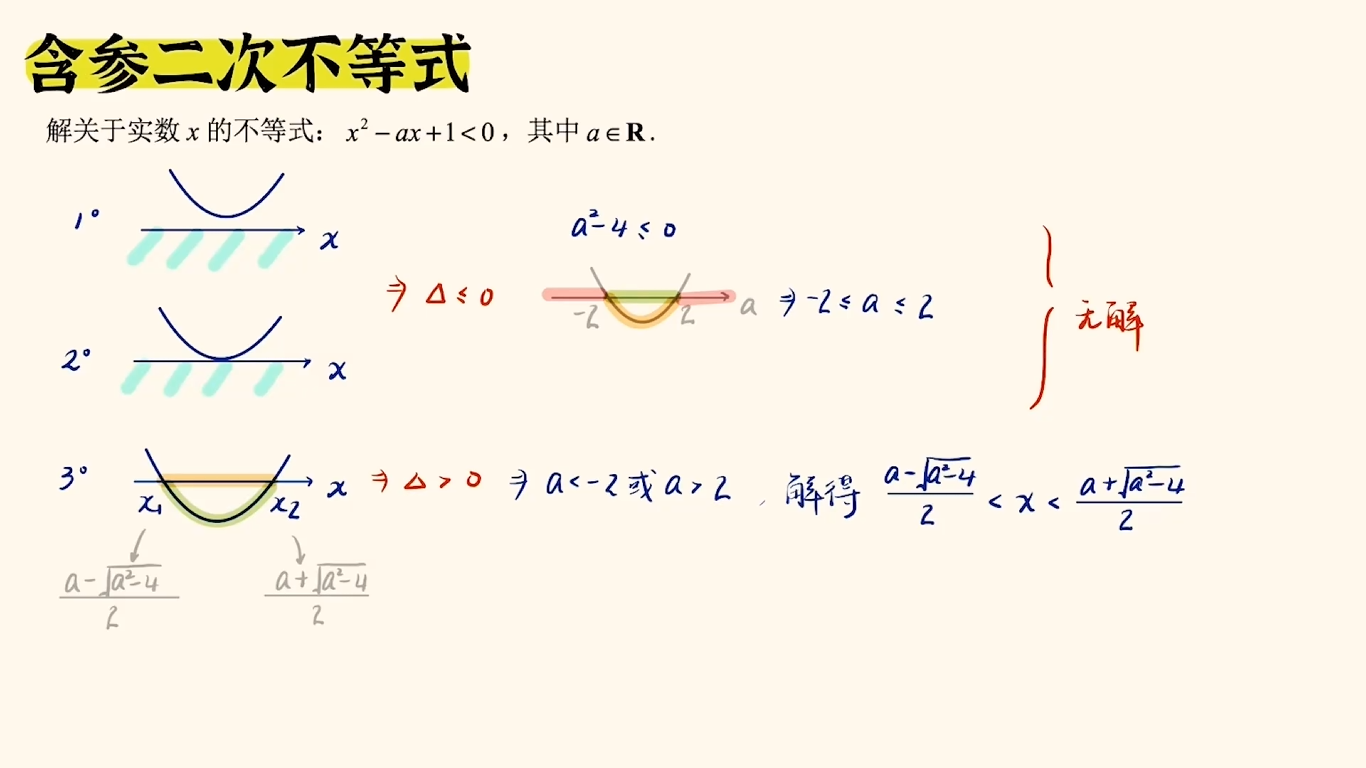 含参二次不等式
解关于实数 x 的不等式： x² − ax + 1 < 0 ，其中 a ∈ R .
1°
x
a²-4 ≤ 0
⇒ Δ ≤ 0
-2 2 a
⇒ -2 ≤ a ≤ 2
无解
2°
x
3°
x₁ x₂ x
⇒ Δ > 0 ⇒ a < -2 或 a > 2 , 解得 (a-√(a²-4))/2 < x < (a+√(a²-4))/2
(a-√(a²-4))/2
(a+√(a²-4))/2